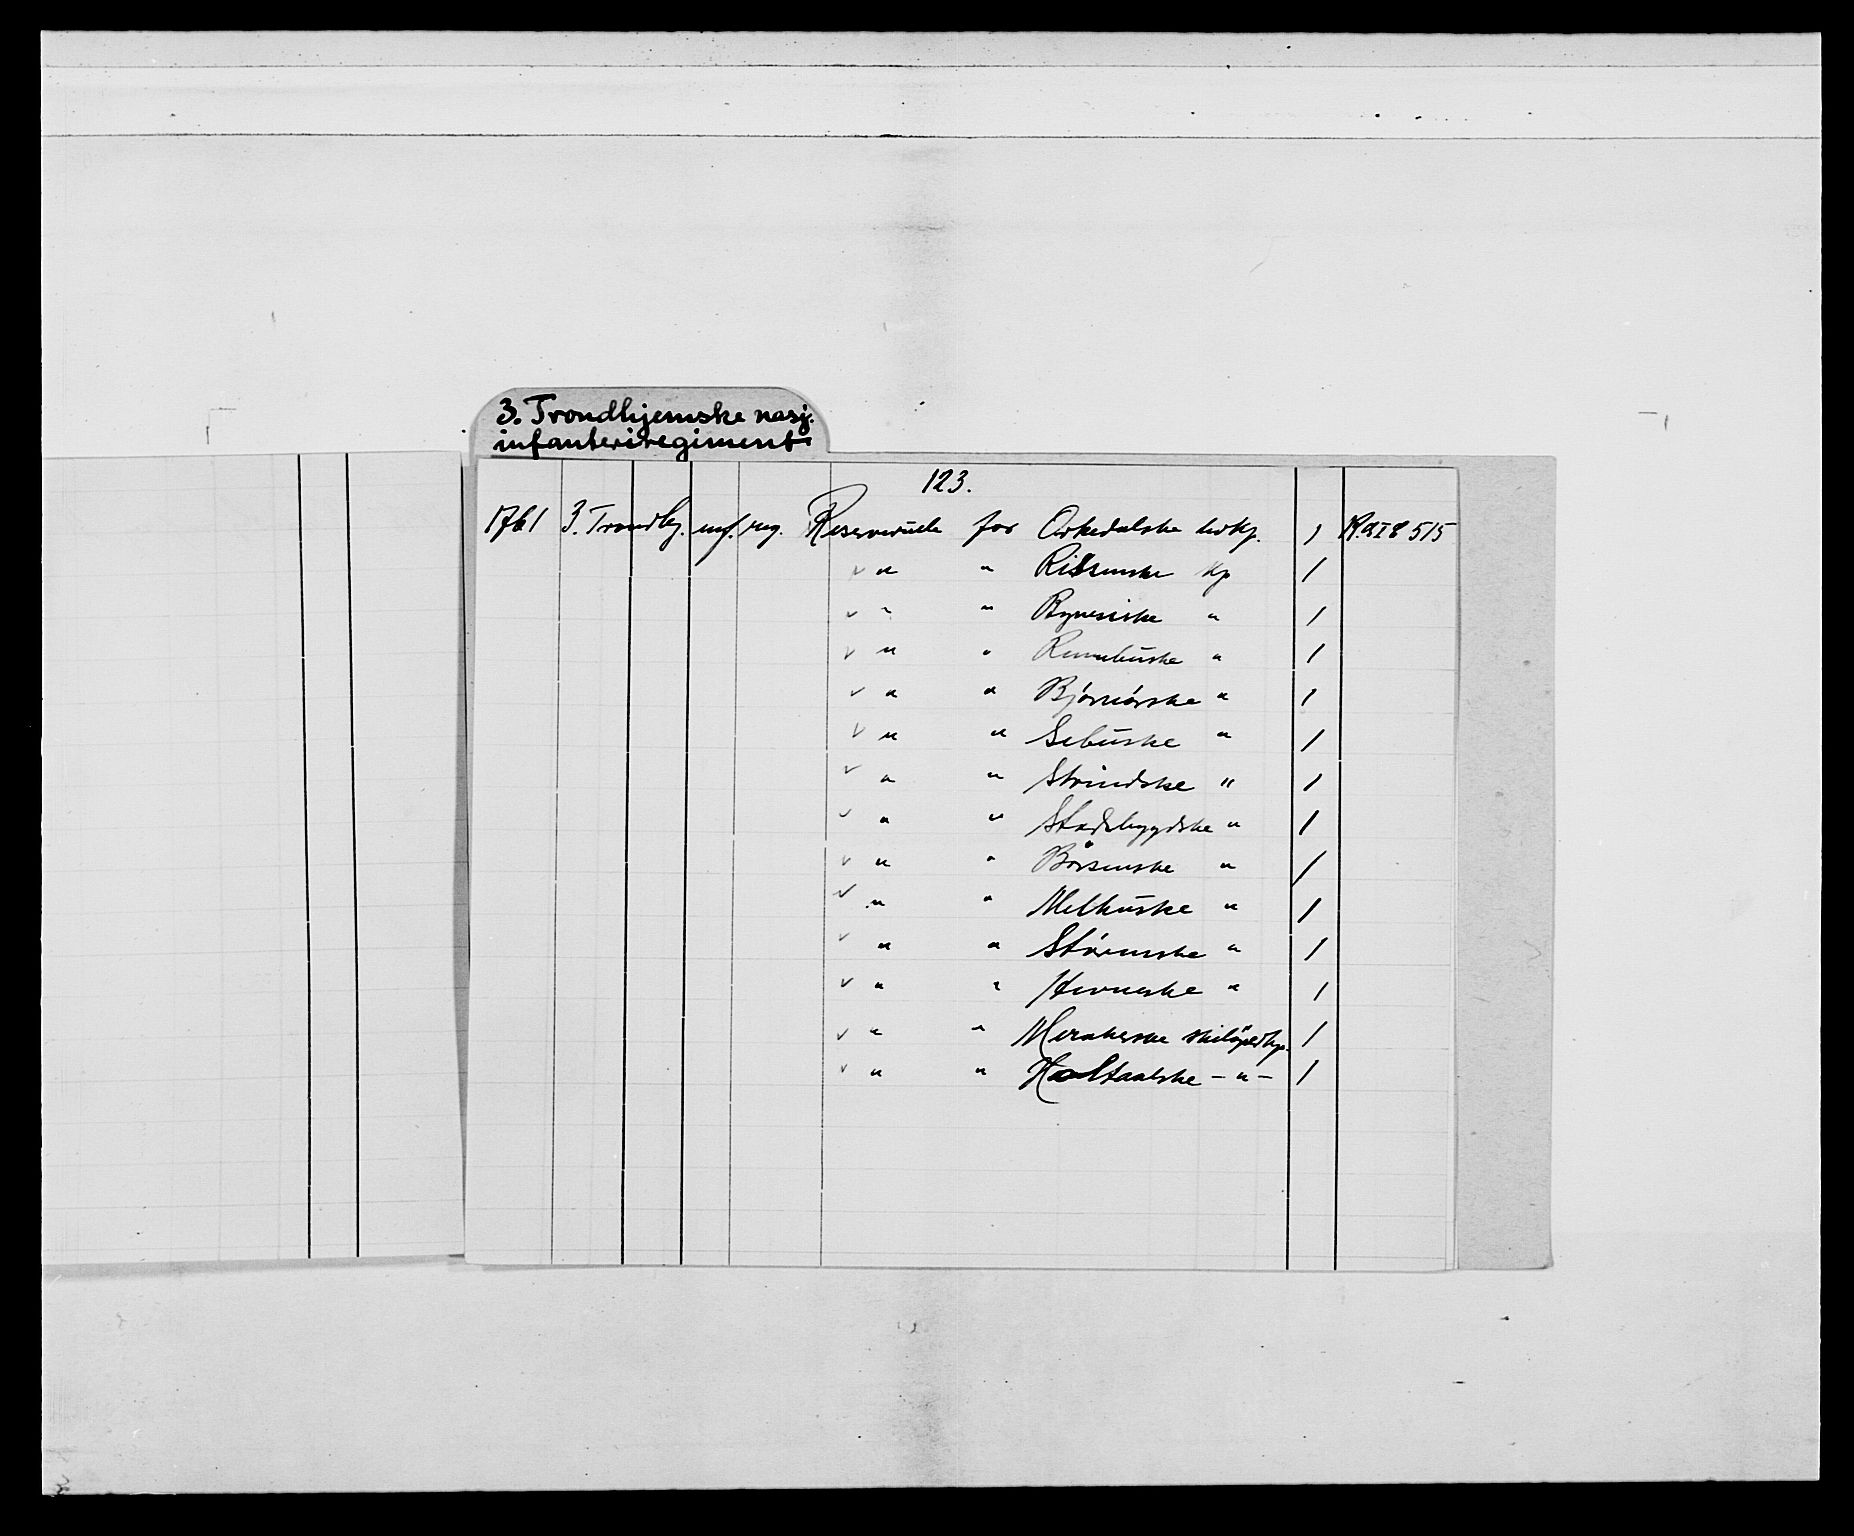 3. Trondhjemske nasj.
infanteriregiment
123.
1761 3. Trondhj. inf. reg. Reserverulle for Orkedalske livkp. 1 R.a I e 515
✓ " " Rissenske kp 1
✓ " " Bynesiske " 1
✓ " " Rennebuske " 1
✓ " " Bjørnørske " 1
✓ " " Selbuske " 1
✓ " " Strindske " 1
✓ " " Stadsbygdske " 1
✓ " " Børsenske " 1
✓ " " Melhuske " 1
✓ " " Størenske " 1
✓ " " Hevneske " 1
✓ " " Merakerske skiløperkp. 1
✓ " " Holtaalske - " - 1